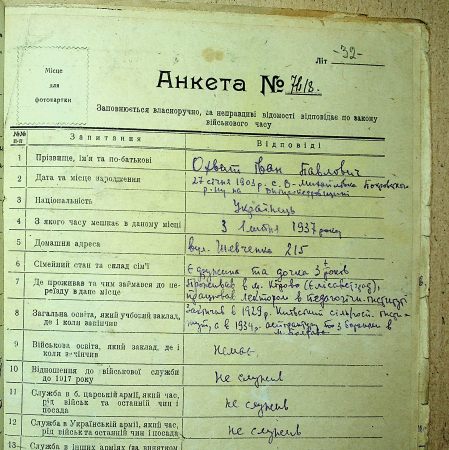 -32-
Літ
Місце
для
фотокартки
Анкета № 76/8.
Заповнюється власноручно, за неправдиві відомості відповідає по закону
військового часу
№№ п-п Запитання Відповіді
1 Прізвище, ім'я та по-батькові Охват Іван Павлович
2 Дата та місце народження 27 січня 1903 р. с. В-Михайлівка Покровского
р-ну на
3 Національність Українець
4 З якого часу мешкає в даному місці З 1 лютня 1937 року
5 Домашня адреса вул. Шевченка 215
6 Сімейний стан та склад сім'ї Є дружина та дочка 3 років
7 Де проживав та чим займався до пе-
реїзду в дане місце
Проживав в м. Кірово (Єлісаветград),
працював лектором в педагогічн. інституті
8 Загальна освіта, який учбовий заклад,
де і коли закінчив
Закінчив в 1929 р. Київський сільгосп.
а в 1934 р. аспірантуру по
9 Військова освіта, який заклад, де
і коли зачінчив
Немає.
10 Відношення до військової служби
до 1917 року
не служив
11 Служба в б. царській армії, який час,
рід військ та останній чин і
посада
не служив
12 Служба в Українській армії, який час,
рід військ та останній чин і посада
не служив
13 Служба в інших арміях (за винятком